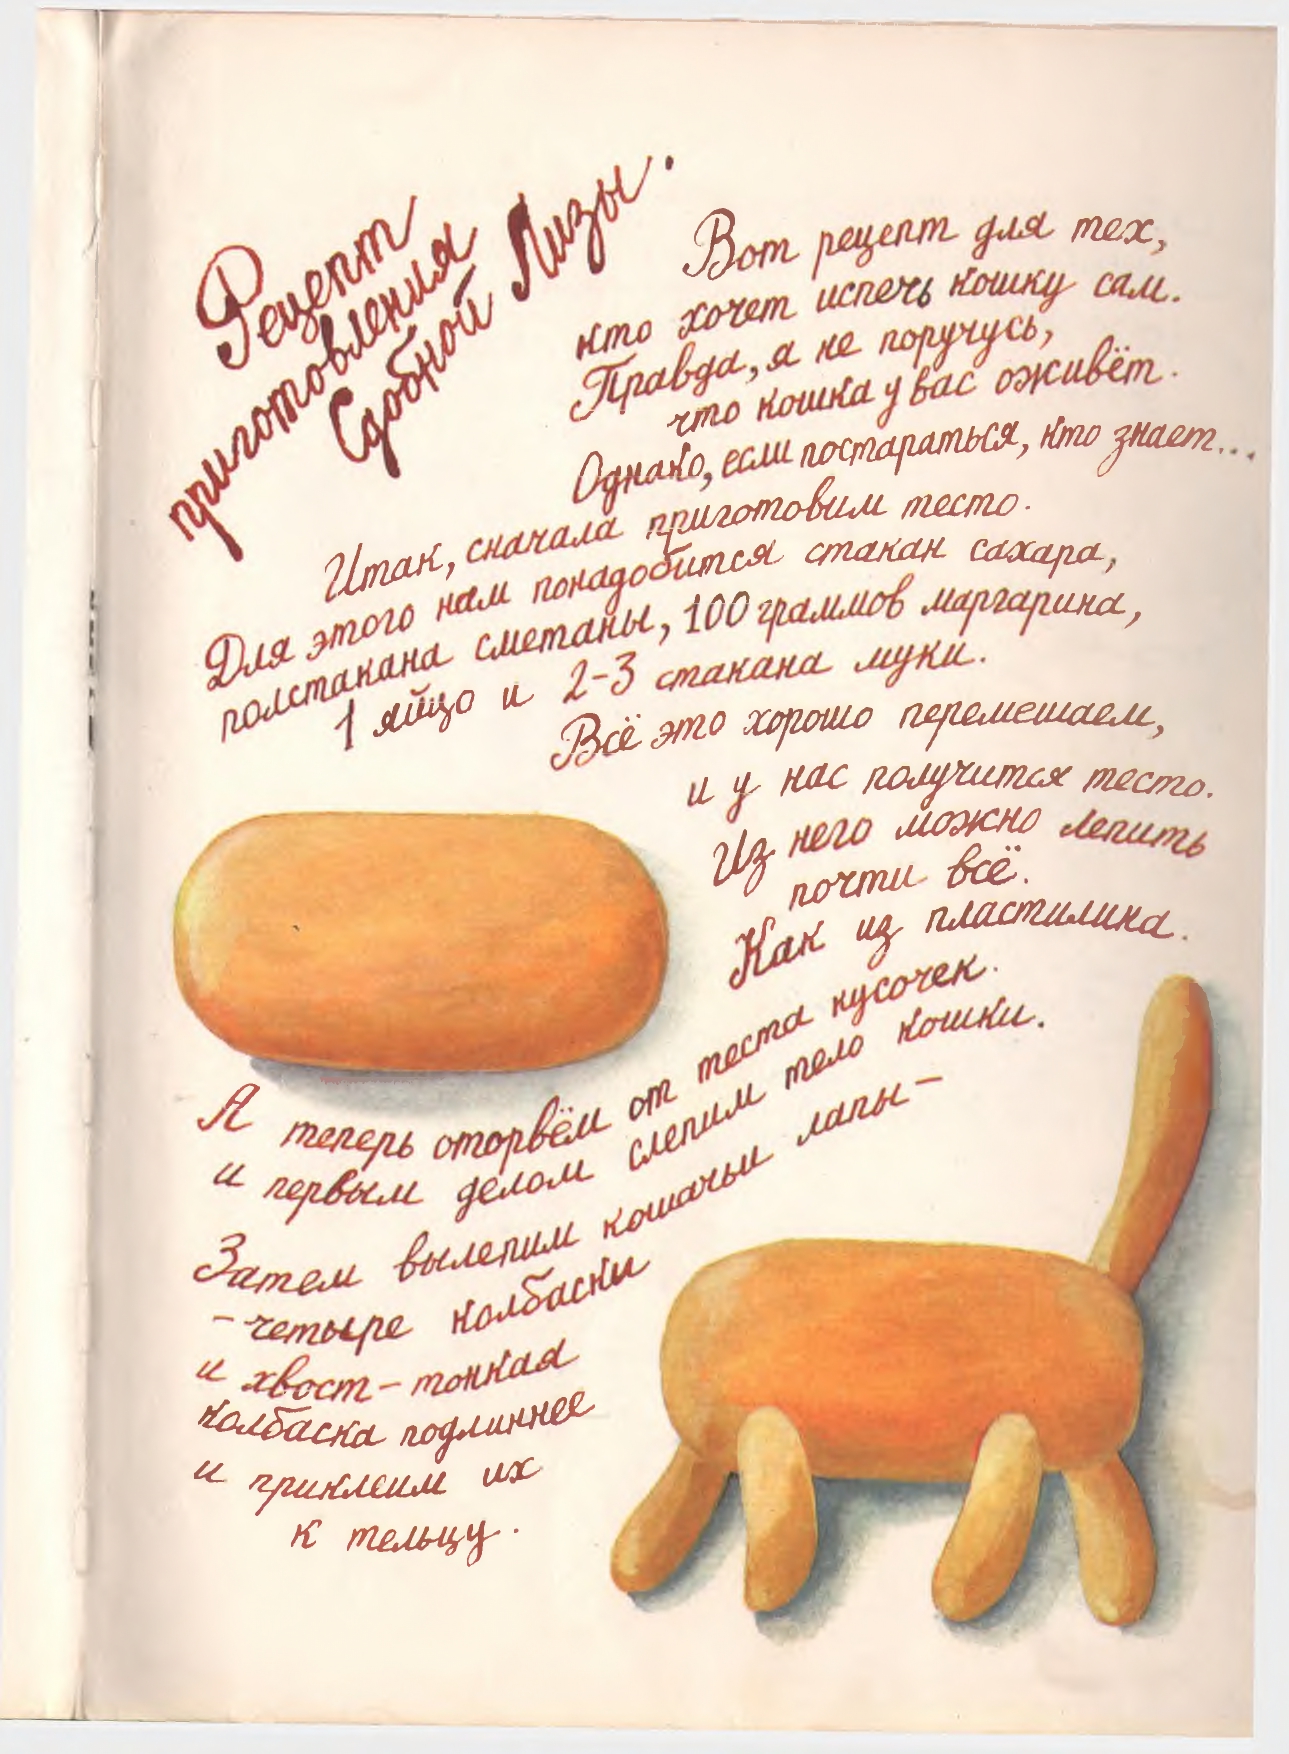 Рецепт
приготовления
Сдобной Лизы.
Вот рецепт для тех,
кто хочет испечь кошку сам.
Правда, я не поручусь,
что кошка у вас оживёт.
Однако, если постараться, кто знает...
Итак, сначала приготовим тесто.
Для этого нам понадобится стакан сахара,
полстакана сметаны, 100 граммов маргарина,
1 яйцо и 2-3 стакана муки.
Всё это хорошо перемешаем,
и у нас получится тесто.
Из него можно лепить
почти всё.
Как из пластилина.
А теперь оторвём от теста кусочек.
и первым делом слепим тело кошки.
Затем вылепим кошачьи лапы-
-четыре колбаски
и хвост-тонкая
колбаска подлиннее
и приклеим их
к тельцу.